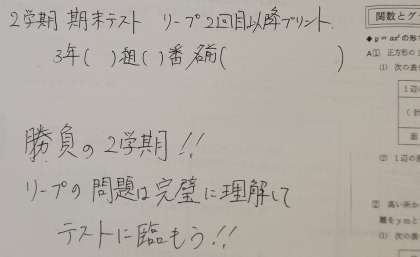 2学期 期末テスト リープ2回目以降プリント.
3年( )組( )番 名前( )
勝負の2学期!!
リープの問題は完璧に理解して
テストに臨もう!!
関数とグ
◆ y = ax² の形
A① 正方形の
(1) 次の表
1辺の
面
(2) 1辺の
② 高い所か
離をymと
(1) 次の表